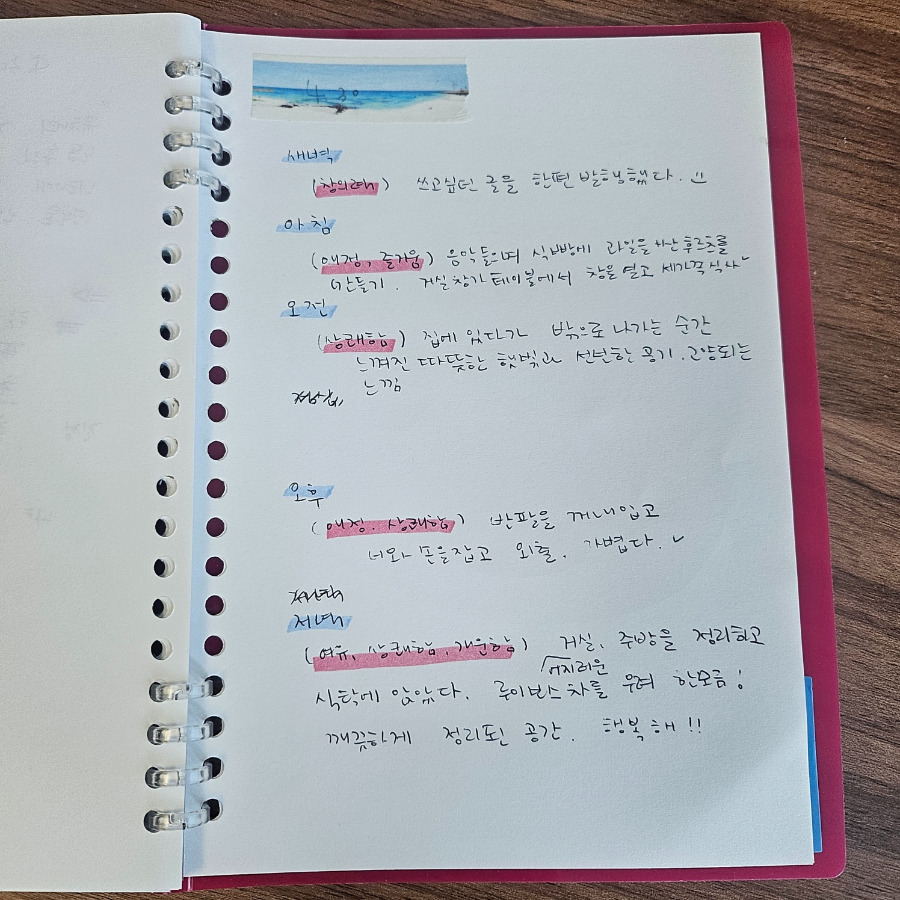 4.30
새벽
(창의력) 쓰고싶던 글을 한편 발행했다. :)
아침
(애정, 즐거움) 음악들으며 식빵에 과일을 후르츠를
만들기. 거실창가 테이블에서 창을 열고 세가족 식사
오전
(상쾌함) 집에 있다가 밖으로 나가는 순간
느껴진 따뜻한 햇빛과 선선한 공기. 고양되는
느낌
오후
(애정. 상쾌함) 반팔을 꺼내입고
너와 손을잡고 외출. 가볍다.
저녁
(여유, 상쾌함, 개운함) 거실, 주방을 정리하고
어지러운
식탁에 앉았다. 루이보스차를 우려 한모금!
깨끗하게 정리된 공간. 행복해!!